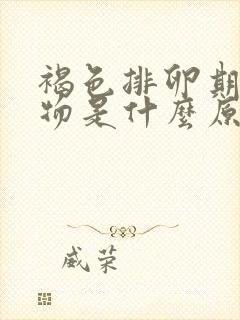 褐色排卵期
物是什麼原
威荣